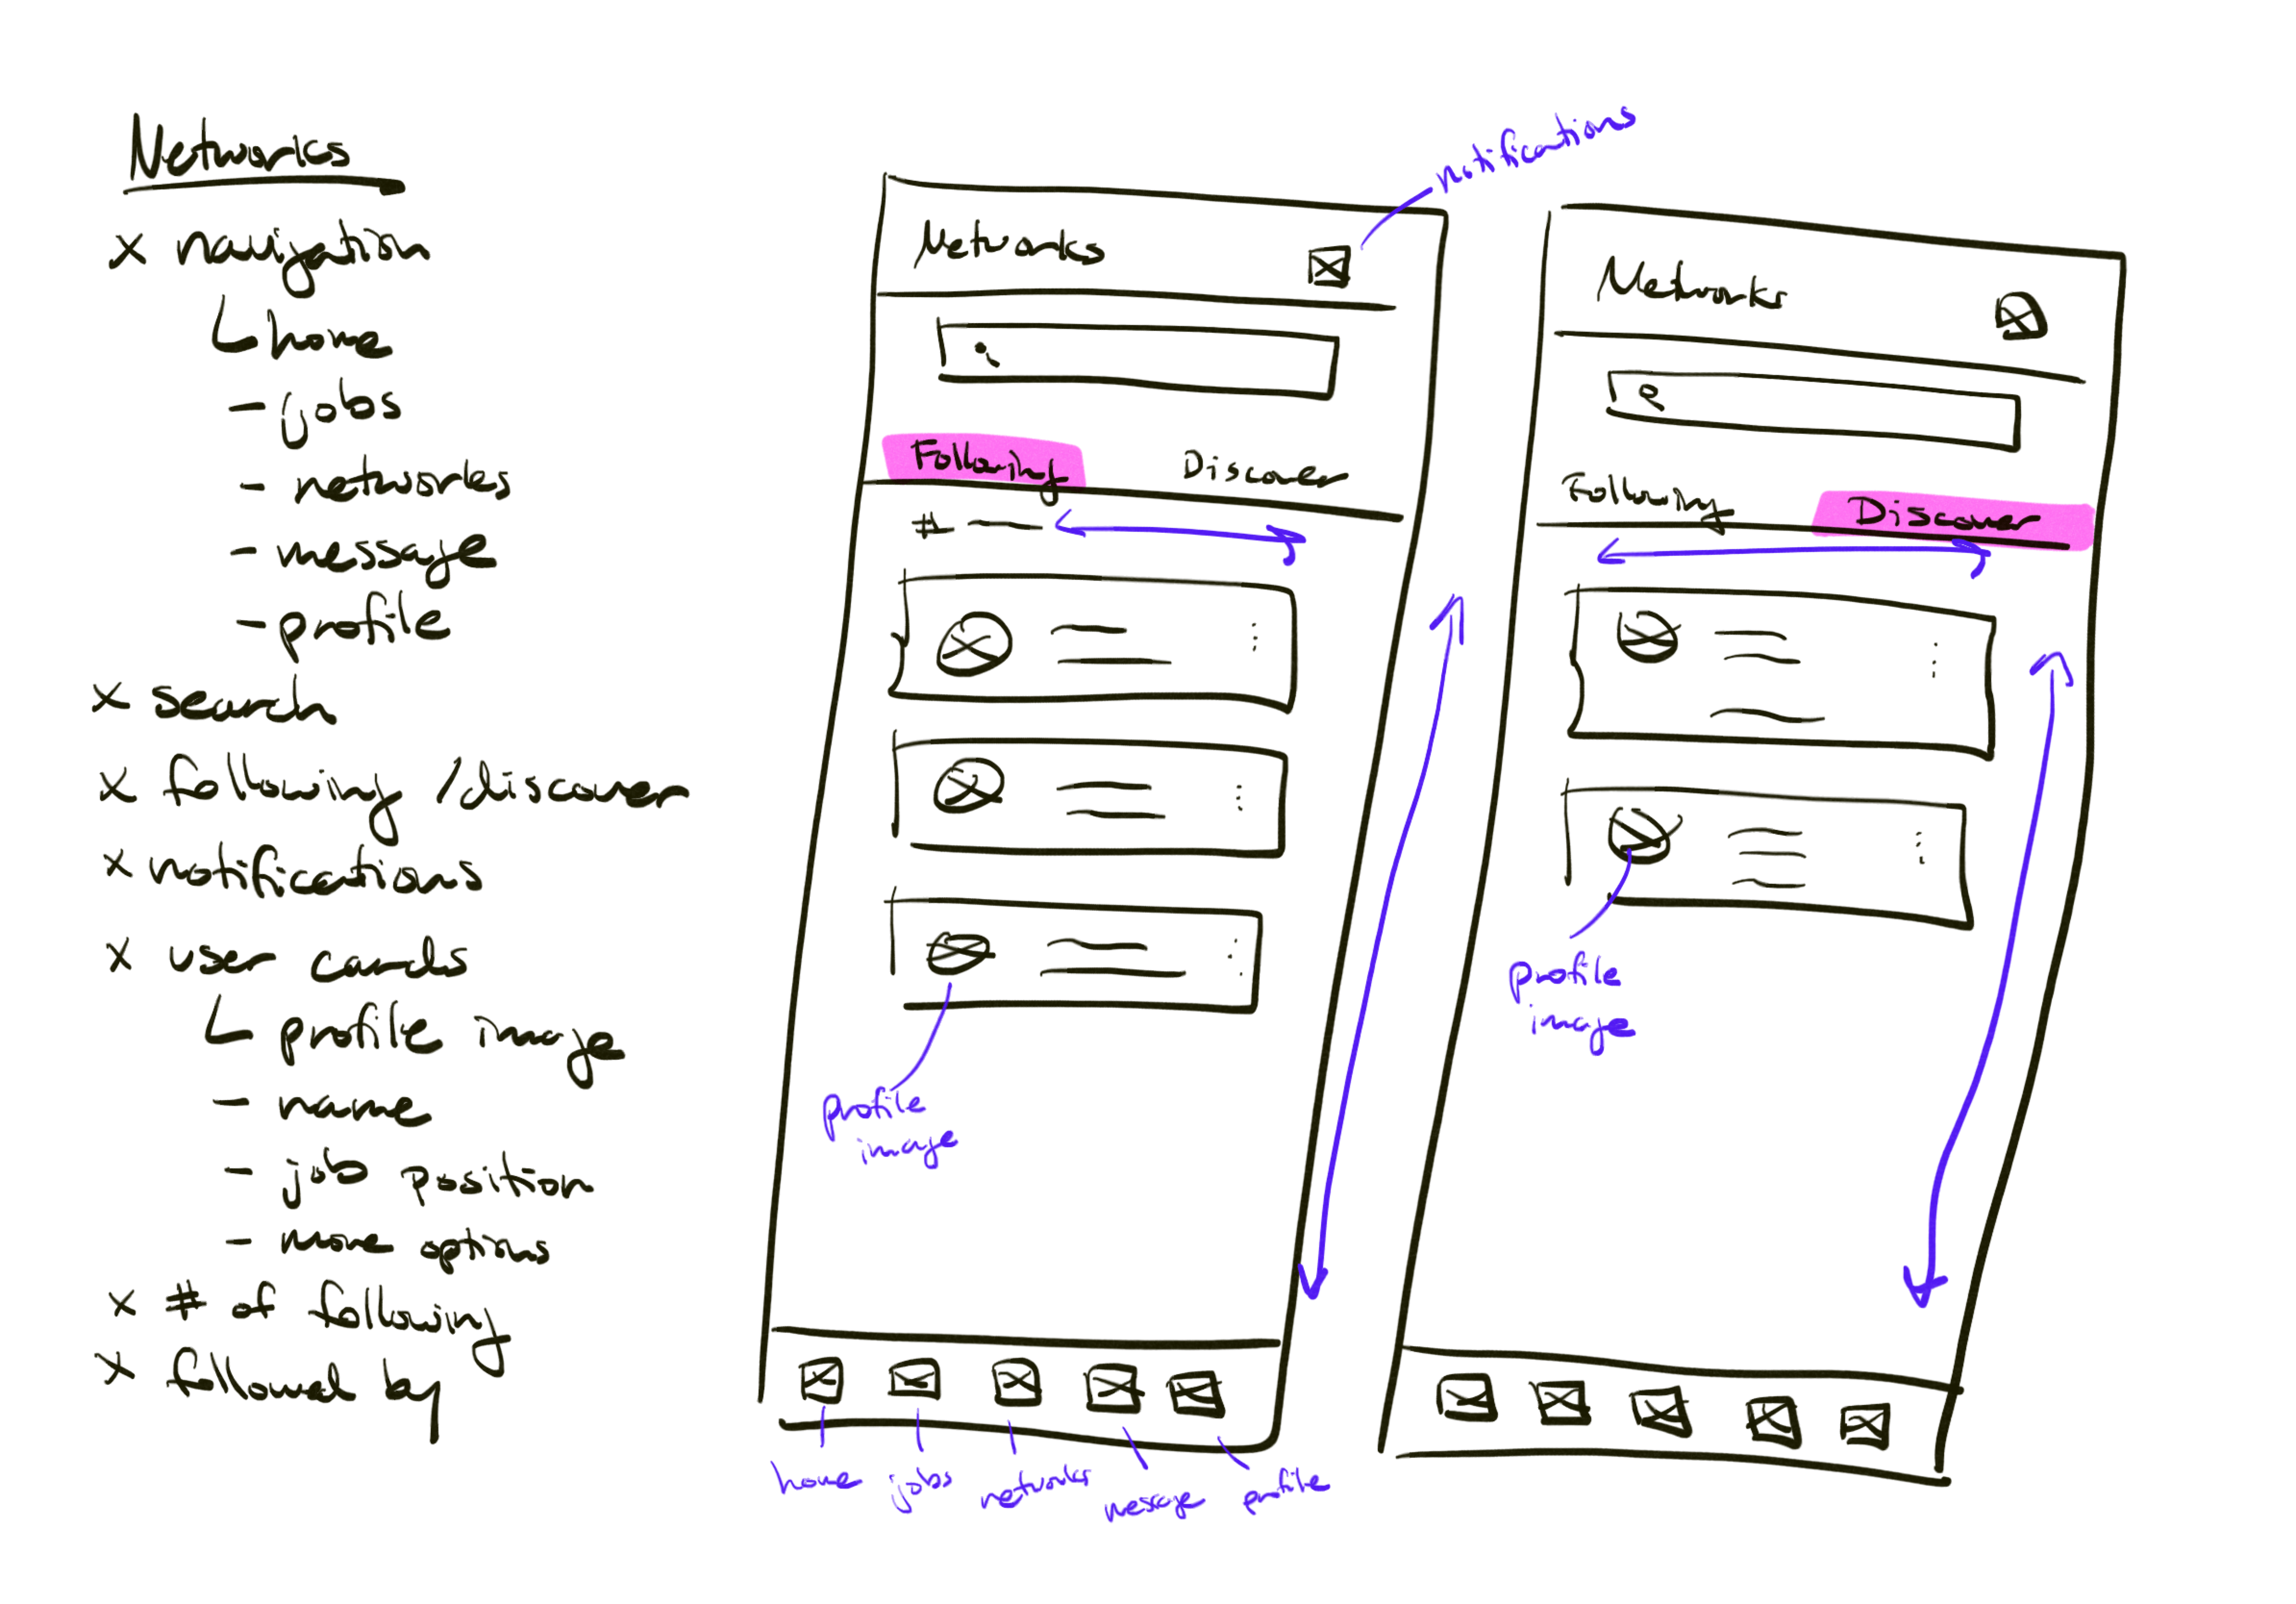 Networks
x navigation
↳ home
- jobs
- networks
- message
- profile
x search
x following / discover
x notifications
x user cards
↳ profile image
- name
- job position
- more options
x # of following
x followed by
notifications
Networks
Following Discover
#
profile
image
home jobs networks message profile
Networks
Following Discover
profile
image